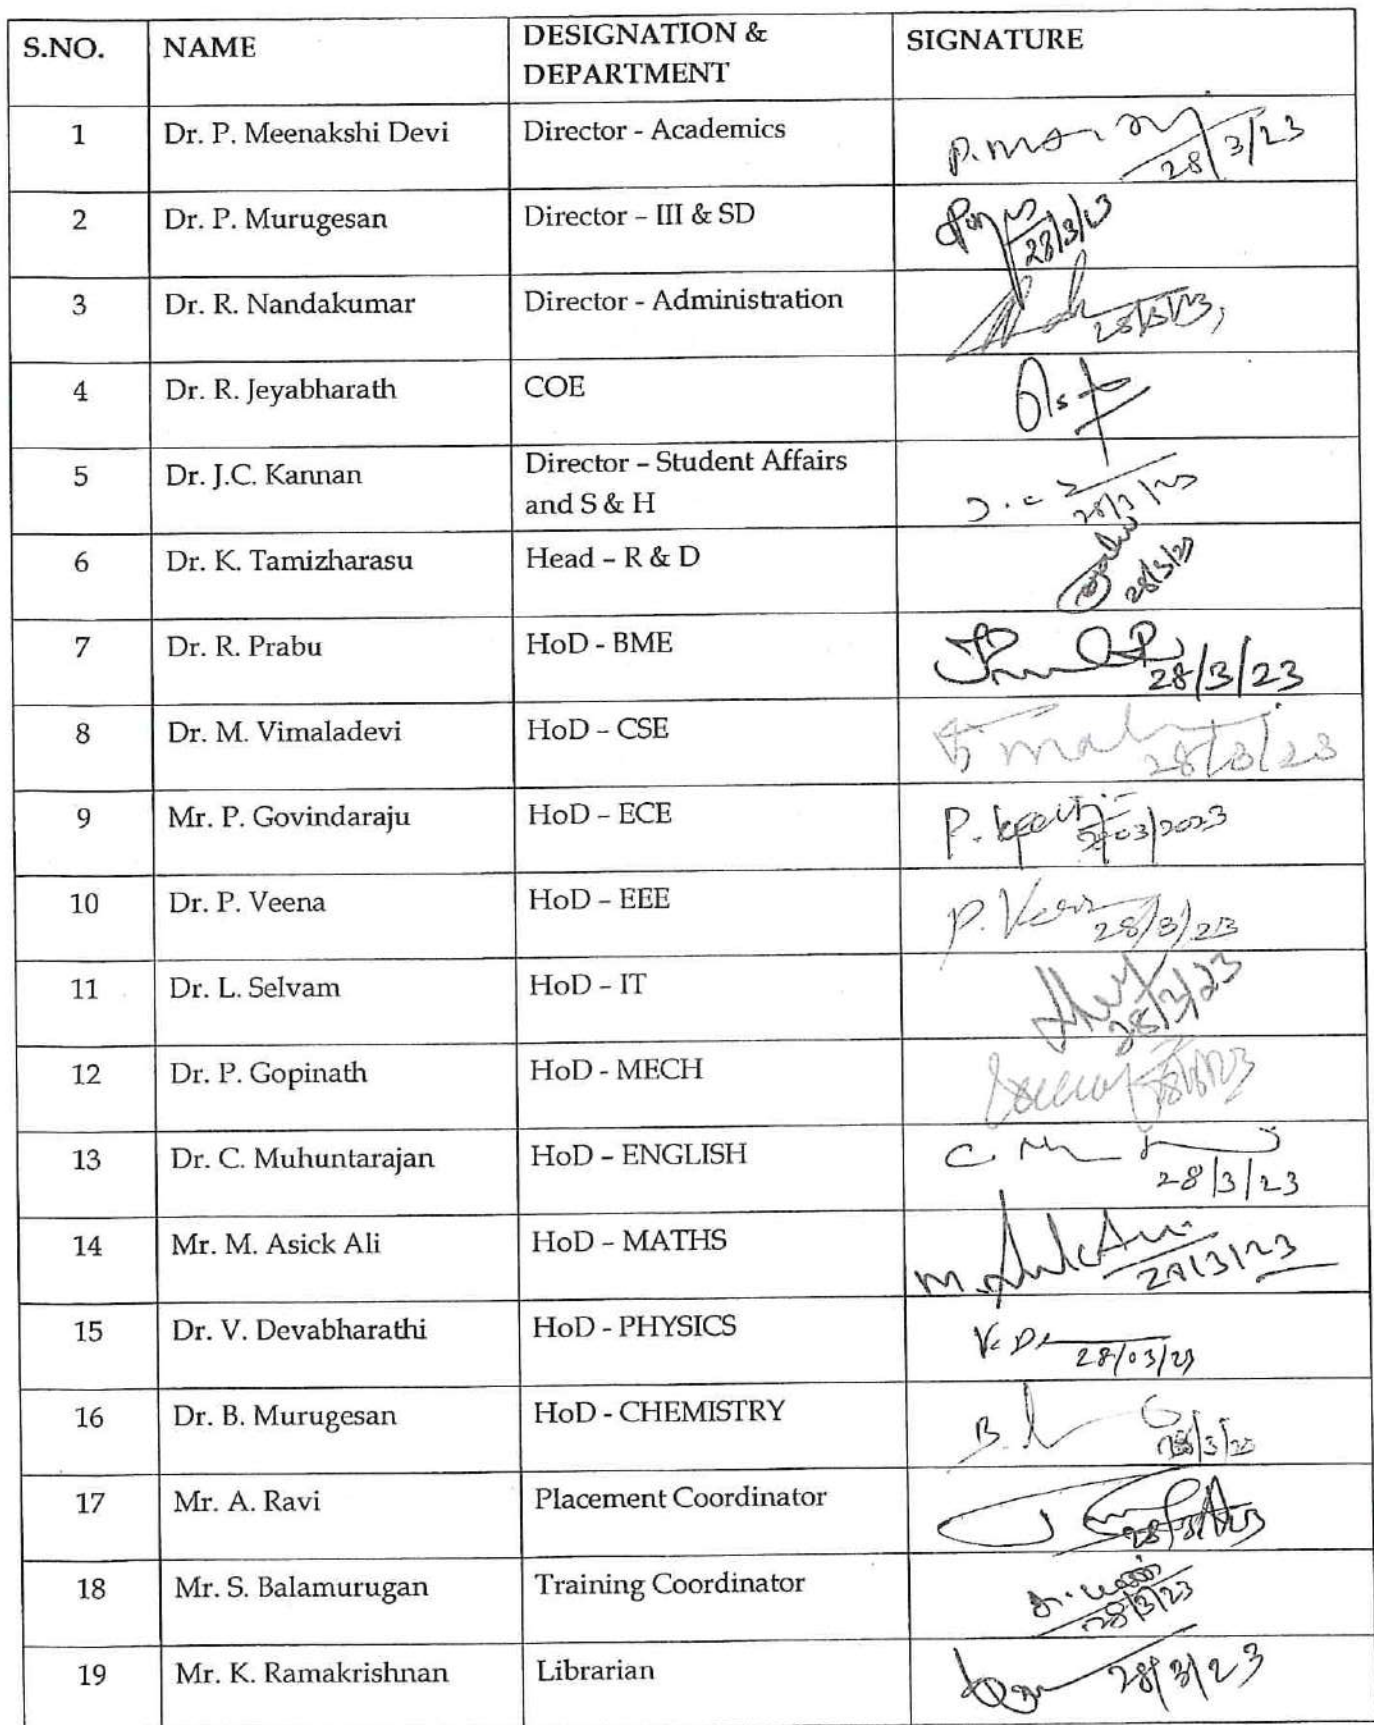 S.NO. NAME DESIGNATION & DEPARTMENT SIGNATURE
1 Dr. P. Meenakshi Devi Director - Academics 28/3/23
2 Dr. P. Murugesan Director – III & SD 28/3/23
3 Dr. R. Nandakumar Director - Administration 28/3/23
4 Dr. R. Jeyabharath COE
5 Dr. J.C. Kannan Director – Student Affairs and S & H 28/3/23
6 Dr. K. Tamizharasu Head – R & D 28/3/23
7 Dr. R. Prabu HoD - BME 28/3/23
8 Dr. M. Vimaladevi HoD – CSE 28/3/23
9 Mr. P. Govindaraju HoD – ECE 28/03/2023
10 Dr. P. Veena HoD – EEE P. 28/3/23
11 Dr. L. Selvam HoD – IT 28/3/23
12 Dr. P. Gopinath HoD - MECH
13 Dr. C. Muhuntarajan HoD – ENGLISH 28/3/23
14 Mr. M. Asick Ali HoD – MATHS 28/3/23
15 Dr. V. Devabharathi HoD - PHYSICS 28/03/23
16 Dr. B. Murugesan HoD - CHEMISTRY 28/3/23
17 Mr. A. Ravi Placement Coordinator 28/3/23
18 Mr. S. Balamurugan Training Coordinator 28/3/23
19 Mr. K. Ramakrishnan Librarian 28/3/23